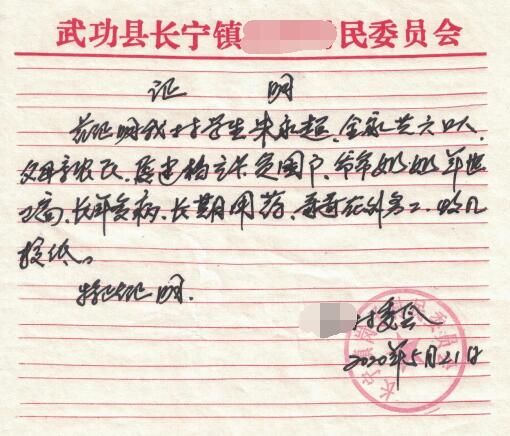 武功县长宁镇民委员会
证 明
兹证明我村学生朱永超,全家共六口人,
父母亲农民,属建档立卡贫困户,爷爷奶奶年世
已高,长年多病,长期用药,哥哥在外务工,收入
较低。
特此证明.
村委会
2020年5月21日